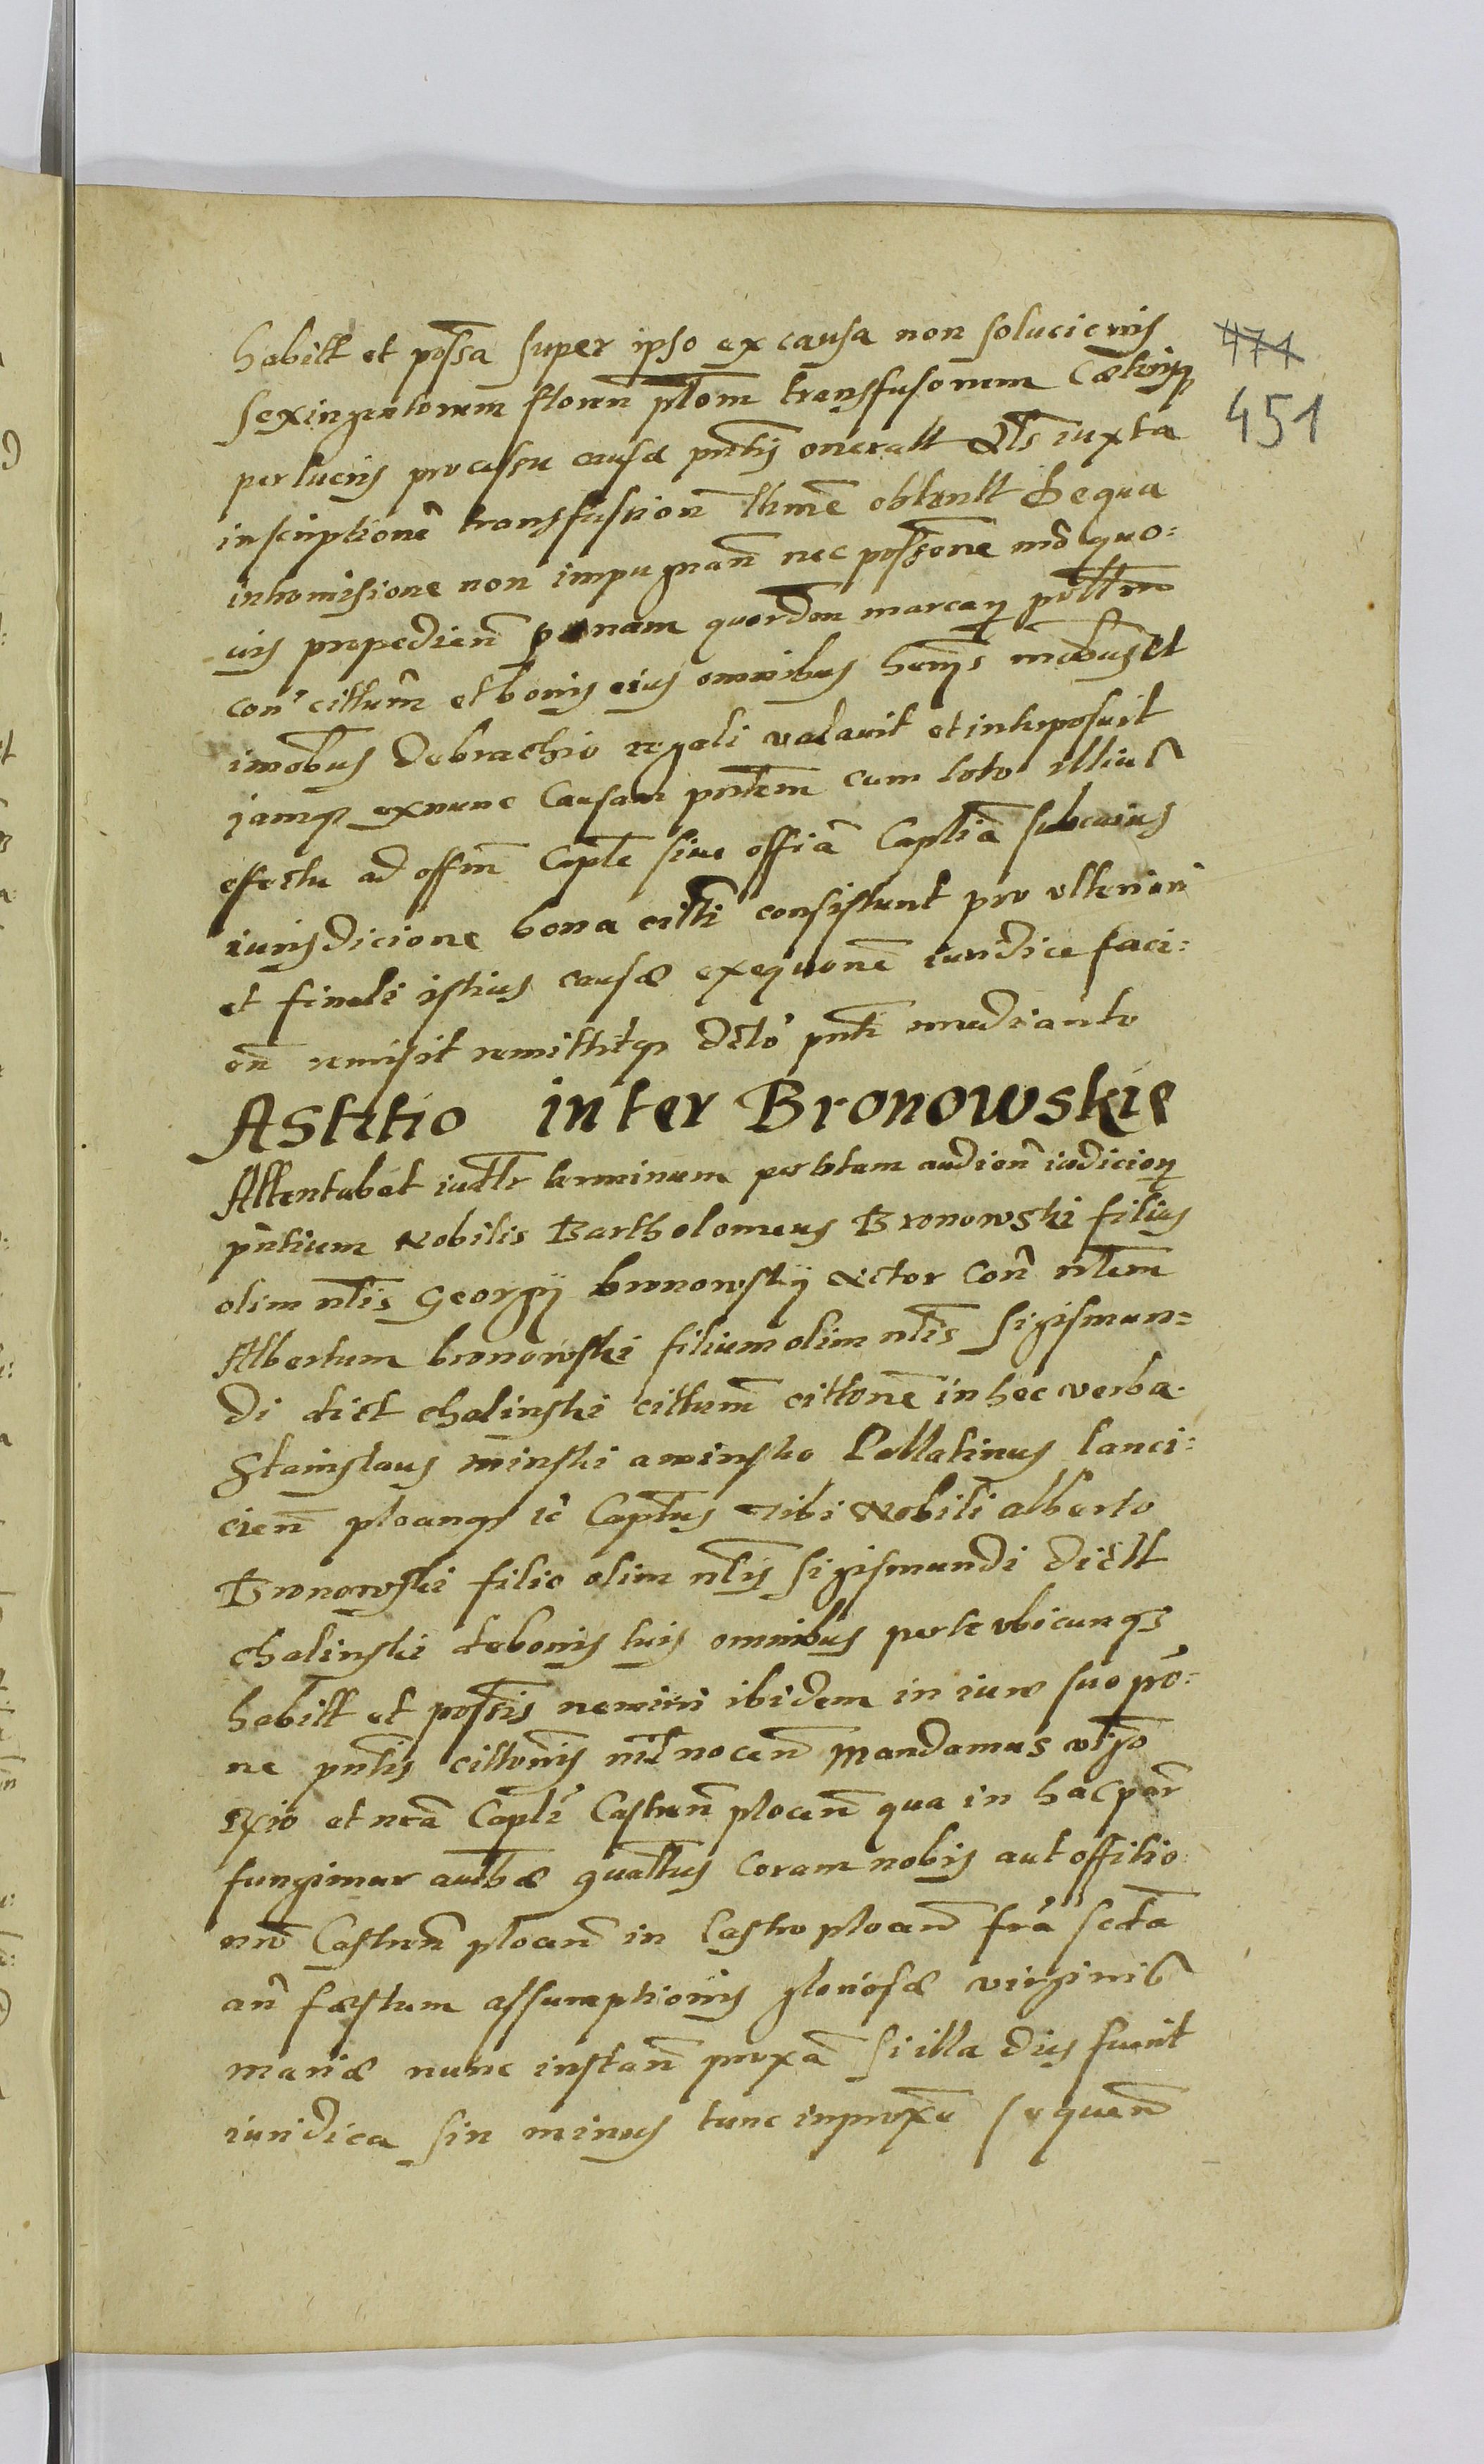 habitt et possa super ipso ex causa non solucionis
sexingentorum floren ptom transfusorum
perlucris processu causæ pntis oneratt Als iuxta
inscriptione transfusion obtentt Deque
intromisione non impugnan nec possone mo quo:
vis prepedien pænam quordem marcarum
con' cittum et bonis eius omnibus mobus et
imobus debrachio regali valavit et interposuit
jamq exnunc Causam pntem cum toto illius
effectu ad offm Capte siue offia Captia subcuius
iurisdicione bona citti consistunt pro vlteriori
et finali istius causæ exequone iuridice faci:
en remisit remittitq dcto pnti mediante
Astitio inter Bronowskie
Attentabat iuattr terminum perbtam audien iudiciorum
pntium Nobilis Bartholomeus Bronowski filius
olim nlis Georgij bronowskij Actor Con nlem
Albertum bronowski filium olim nlis Sigismun=
di dict chalinski cittum cittone in hec verba.
Stanislaus minski aminsko Pallatinus lanci:
cien plocenq ic Captus Tibi Nobili alberto
Bronowski filio olim nlis Sigismundi dictt
chalinski debonis tuis omnibus perte vbicunqs
habitt et possis nemini ibidem in iure suo pro:
ne pntis cittonis nil nocen Mandamus vtqo
et nra Capli Castren plocen qua in hac par
fungimur authæ quattus Coram nobis aut offitio
nro Castren plocen in Castro plocen fra scda
an fæstum assumptionis gloriosæ virginis
mariæ nunc instan proxa Si illa dies fuerit
iuridica sin minus tunc inproxe sequen
471
451